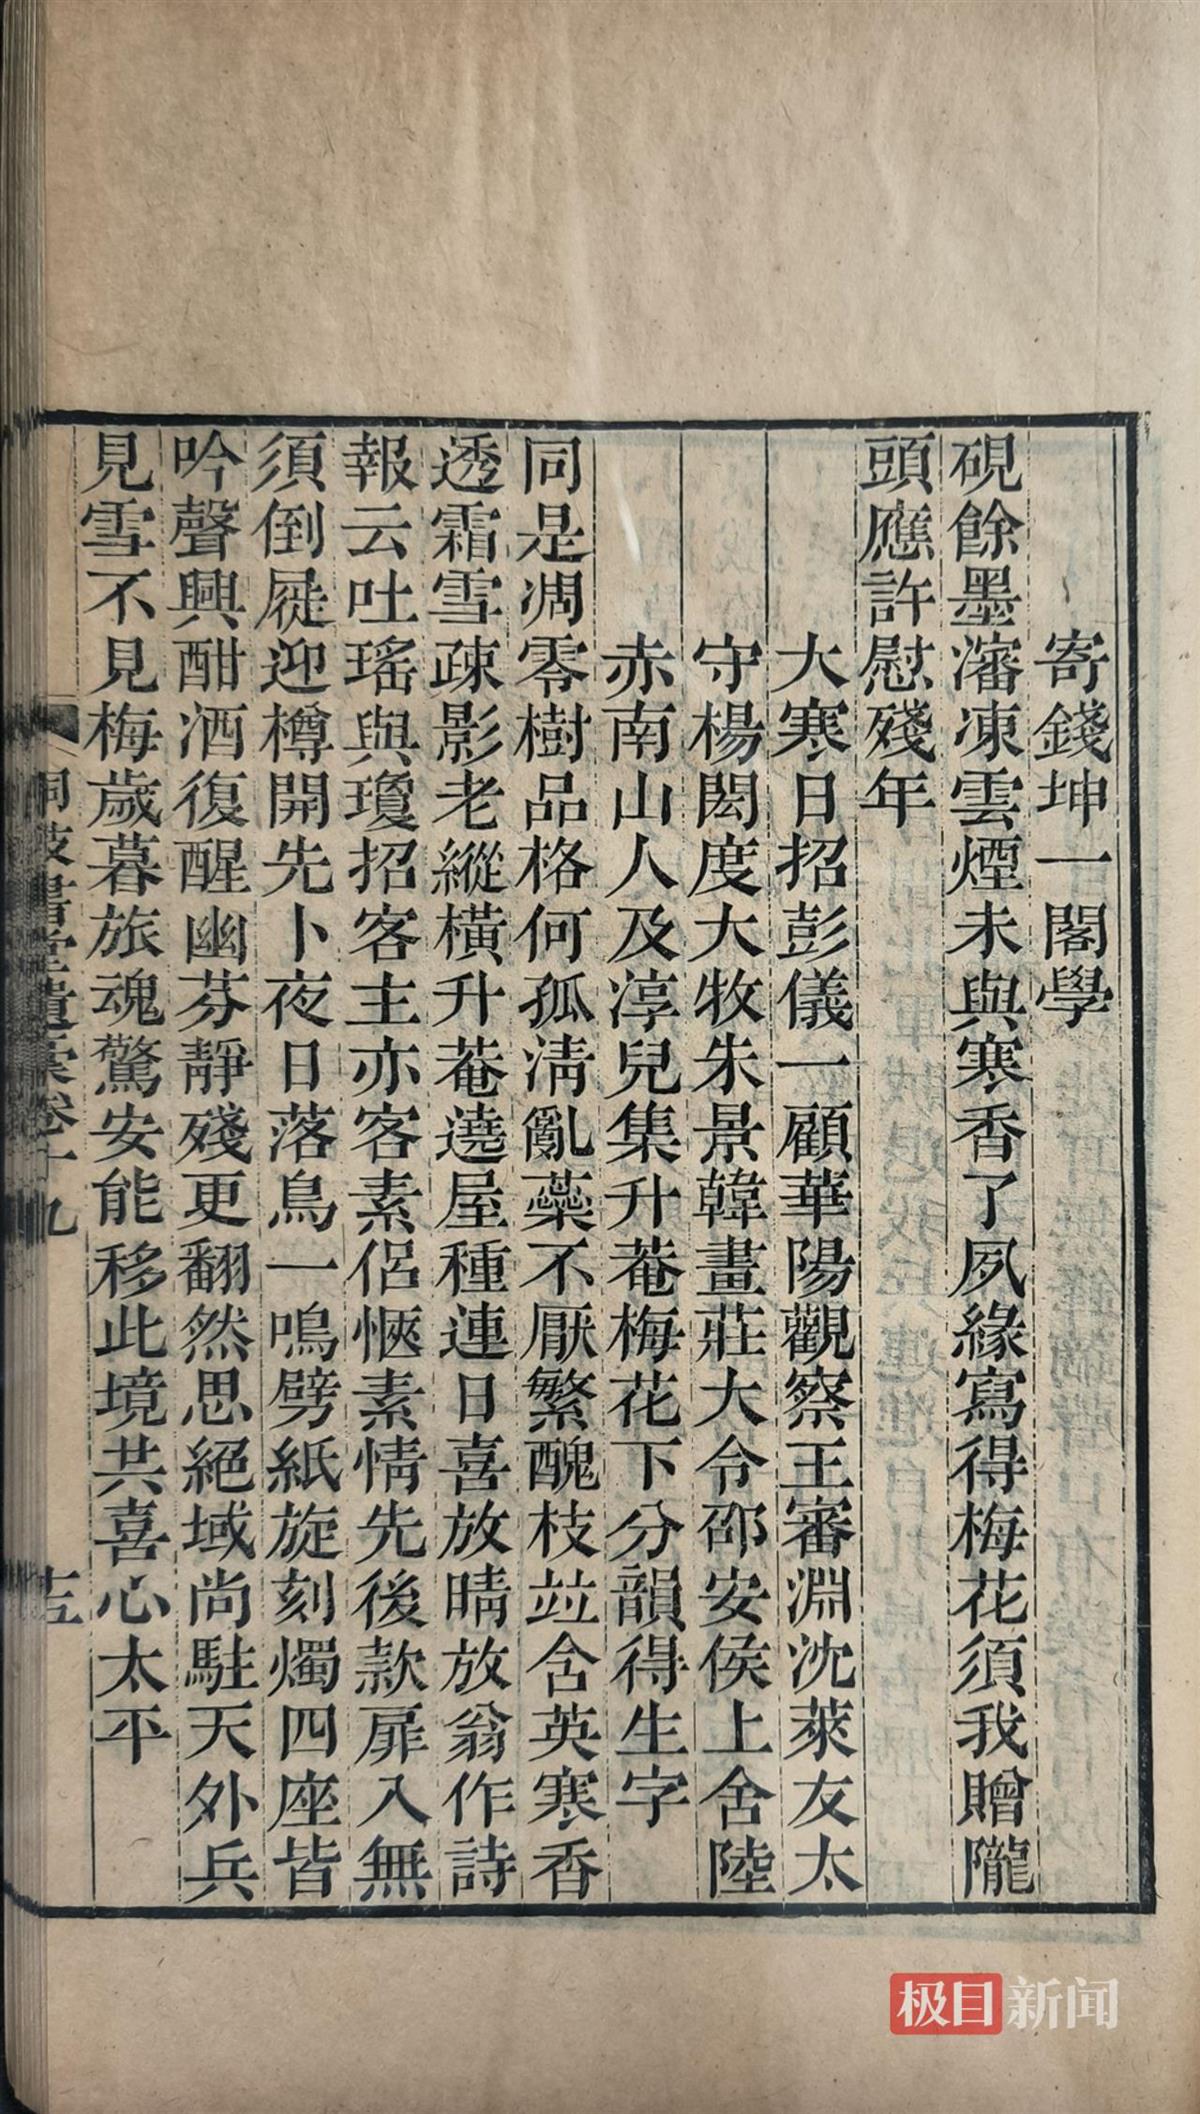 寄錢坤一閣學
硯餘墨瀋凍雲煙未與寒香了夙緣寫得梅花須我贈隴
頭應許慰殘年
大寒日招彭儀一顧華陽觀察王審淵沈萊友太
守楊閎度大牧朱景韓畫莊大令邵安侯上舍陸
赤南山人及淳兒集升菴梅花下分韻得生字
同是凋零樹品格何孤清亂蘂不厭繁醜枝竝含英寒香
透霜雪疎影老縱橫升菴遶屋種連日喜放晴放翁作詩
報云吐瑤與瓊招客主亦客素侶愜素情先後款扉入無
須倒屣迎樽開先卜夜日落鳥一鳴劈紙旋刻燭四座皆
吟聲興酣酒復醒幽芬靜殘更翻然思絕域尚駐天外兵
見雪不見梅歲暮旅魂驚安能移此境共喜心太平
書堂遺稾卷十九
極目新闻